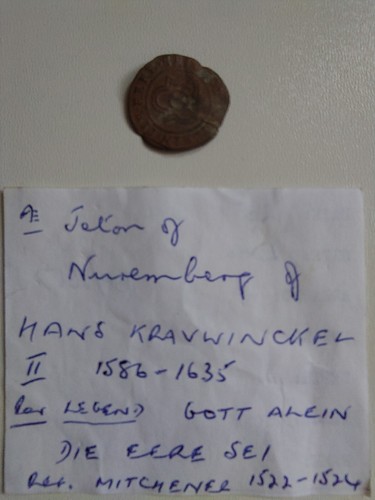 Æ Jeton of
Nuremberg of
HANS KRAUWINCKEL
II 1586-1635
Rev LEGEND GOTT ALEIN
DIE EERE SEI
Ref. MITCHENER 1522-1524